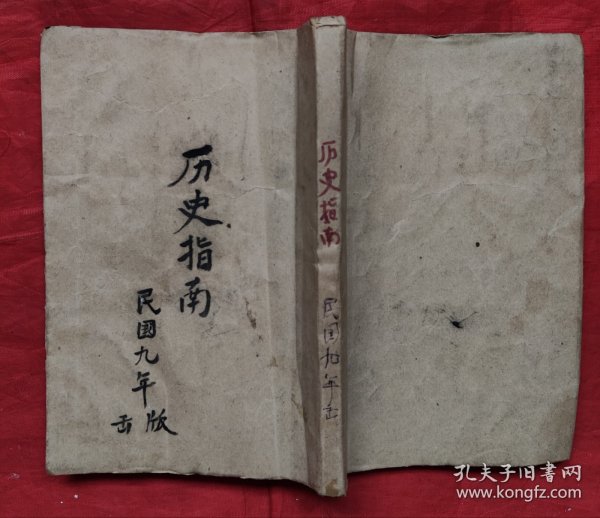 历史指南
民国九年版
历史指南
民国九年
孔夫子旧书网
www.kongfz.com